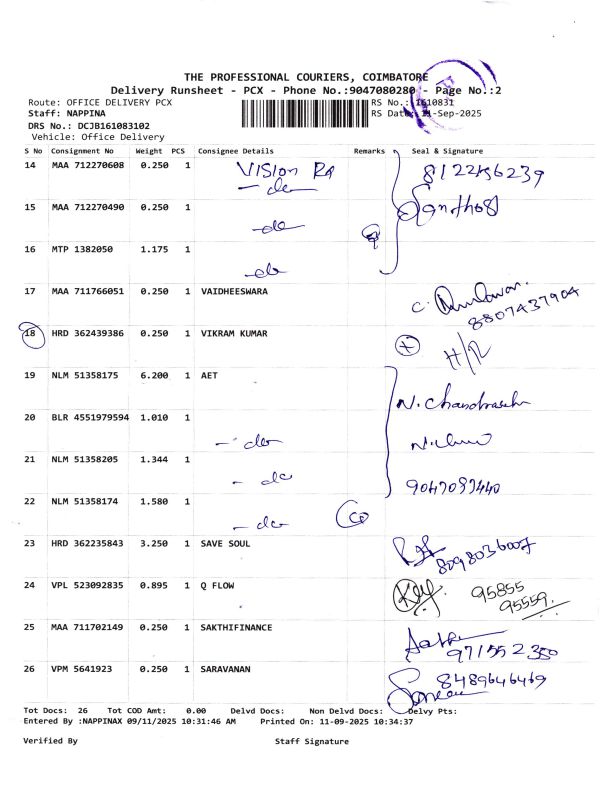 THE PROFESSIONAL COURIERS, COIMBATORE
Delivery Runsheet - PCX - Phone No.:9047080280 - Page No.:2
Route: OFFICE DELIVERY PCX RS No.: 1610831
Staff: NAPPINA RS Date: 11-Sep-2025
DRS No.: DCJB161083102
Vehicle: Office Delivery
S No Consignment No Weight PCS Consignee Details Remarks Seal & Signature
14 MAA 712270608 0.250 1 VISION RA
- do
15 MAA 712270490 0.250 1 Santhos
- do
16 MTP 1382050 1.175 1
- do
17 MAA 711766051 0.250 1 VAIDHEESWARA
8807437904
18 HRD 362439386 0.250 1 VIKRAM KUMAR H/R
19 NLM 51358175 6.200 1 AET N. Chandrasek
20 BLR 4551979594 1.010 1
- do
21 NLM 51358205 1.344 1
- do
22 NLM 51358174 1.580 1
- do
23 HRD 362235843 3.250 1 SAVE SOUL
8098036007
24 VPL 523092835 0.895 1 Q FLOW 95855
95559
25 MAA 711702149 0.250 1 SAKTHIFINANCE
26 VPM 5641923 0.250 1 SARAVANAN 8489646469
Tot Docs: 26 Tot COD Amt: 0.00 Delvd Docs: Non Delvd Docs: Delvy Pts:
Entered By :NAPPINAX 09/11/2025 10:31:46 AM Printed On: 11-09-2025 10:34:37
Verified By Staff Signature